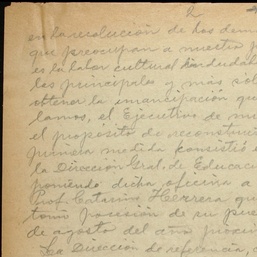 2
en la resolución de los dem
que preocupan a nuestro p
es la labor cultural sin duda
las principales y más sól
obtener la emancipación que
lamos, el Ejecutivo de mi
el propósito de reconstrui
primera medida consistió e
la Dirección Gral. de Educac
poniendo dicha oficina a
Prof. Catarino Herrera qu
tomó posesión de su pues
de agosto del año próxi
La Dirección de referencia,